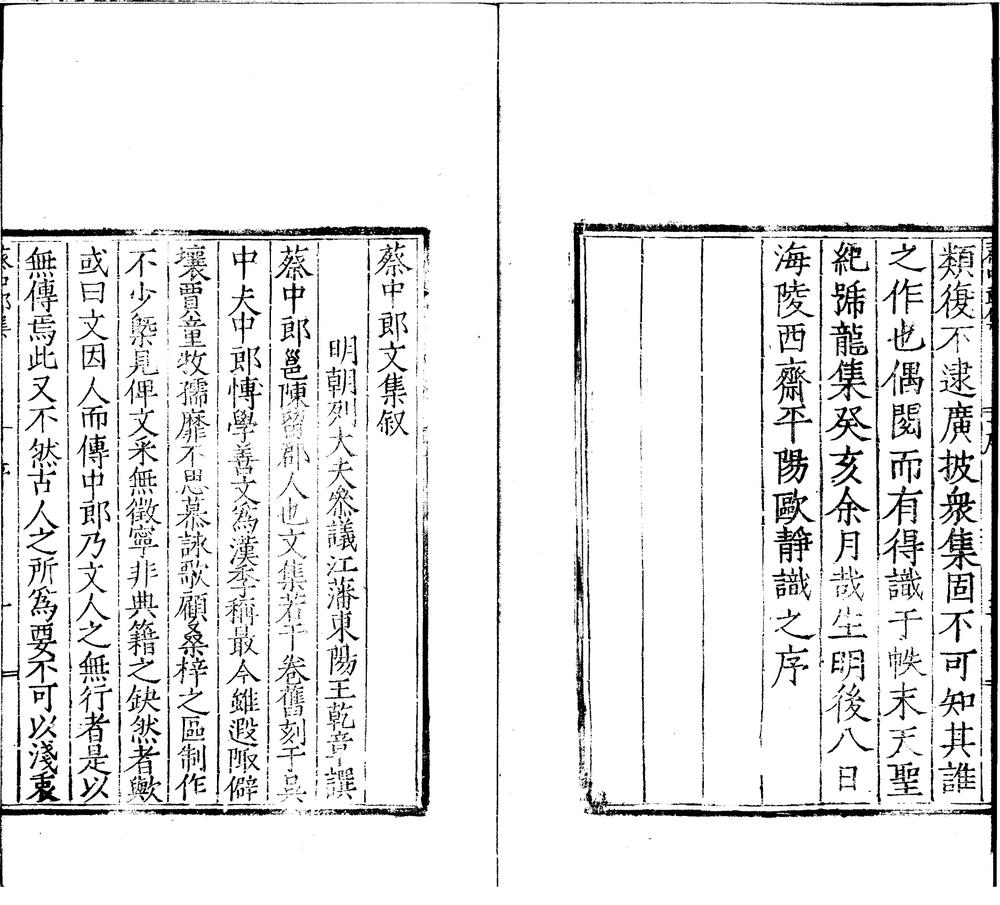 類復不逮廣披衆集固不可知其誰
之作也偶閱而有得識于帙末天聖
紀號龍集癸亥余月哉生明後八日
海陵西齋平陽歐靜識之序
蔡中郎文集叙
明朝列大夫叅議江藩東陽王乾章譔
蔡中郎邕陳留郡人也文集若干卷舊刻于吳
中夫中郎慱學善文爲漢季稱最今雖遐陬僻
壤賈童牧孺靡不思慕詠歌顧桑梓之區制作
不少槩見俾文釆無徵寧非典籍之缺然者歟
或曰文因人而傳中郎乃文人之無行者是以
無傳焉此又不然古人之所爲要不可以淺衷